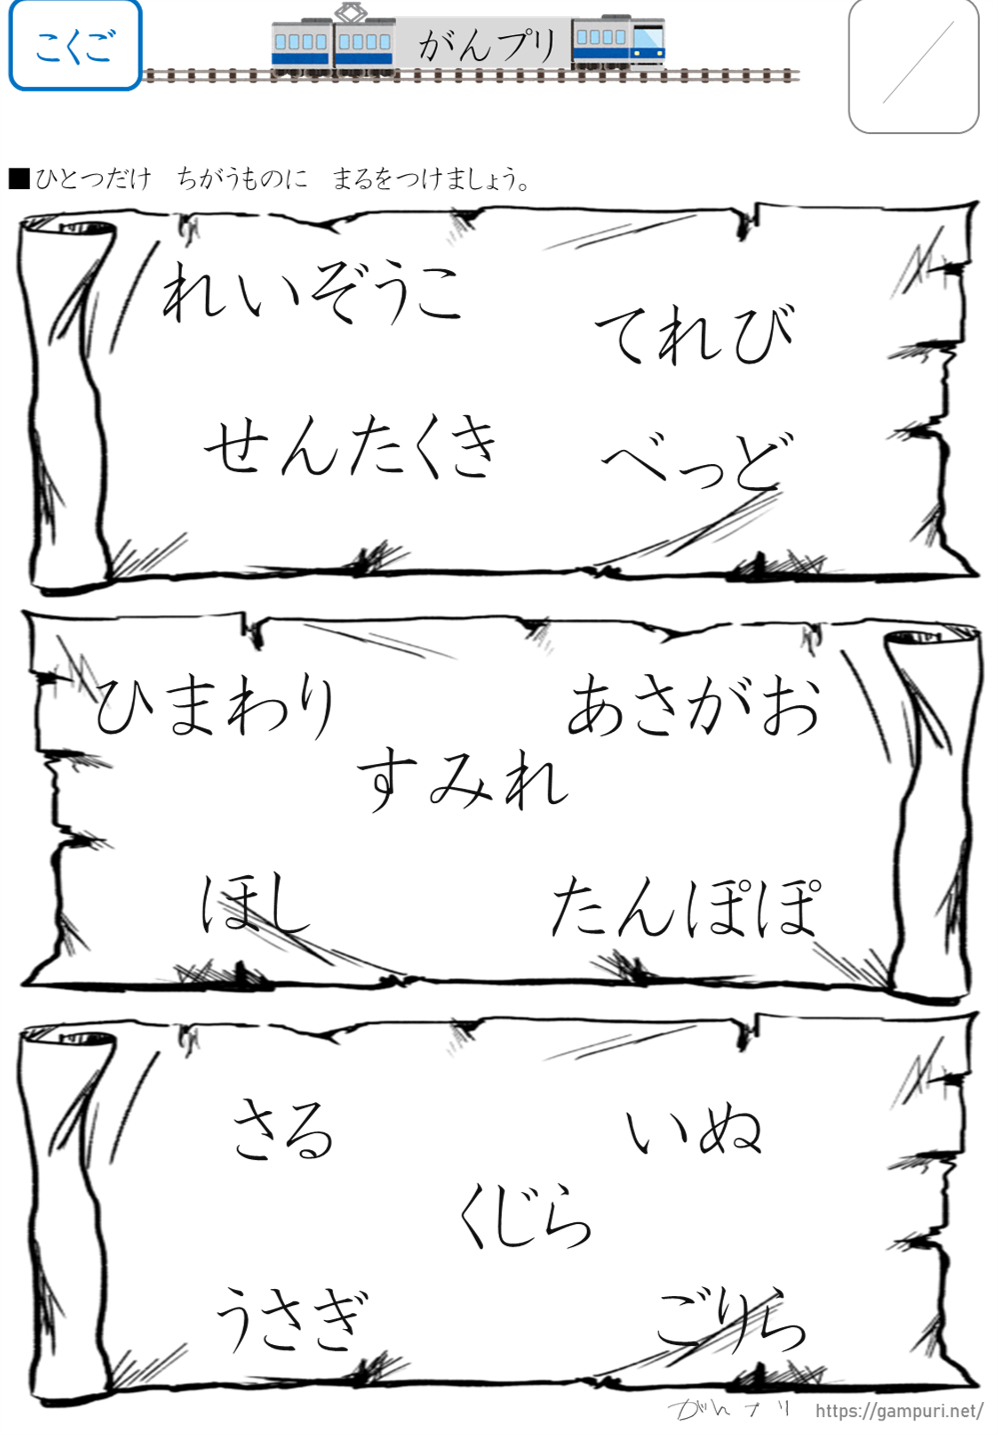 こくご
がんプリ
■ひとつだけ　ちがうものに　まるをつけましょう。
れいぞうこ
てれび
せんたくき
べっど
ひまわり
あさがお
すみれ
ほし
たんぽぽ
さる
いぬ
くじら
うさぎ
ごりら
がんプリ https://gampuri.net/